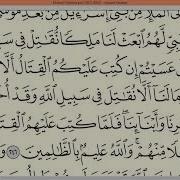 ٱلْمَلَإِ مِنۢ بَنِىٓ إِسْرَٰٓءِيلَ مِنۢ بَعْدِ مُوسَىٰٓ
لَّهُمُ ٱبْعَثْ لَنَا مَلِكًا نُّقَٰتِلْ فِى
عَسَيْتُمْ إِن كُتِبَ عَلَيْكُمُ ٱلْقِتَالُ أَلَّا
لَنَآ أَلَّا نُقَٰتِلَ فِى سَبِيلِ ٱللَّهِ وَقَدْ
وَأَبْنَآئِنَا فَلَمَّا كُتِبَ عَلَيْهِمُ
مِّنْهُمْ وَٱللَّهُ عَلِيمٌۢ بِٱلظَّٰلِمِينَ ٢٤٦